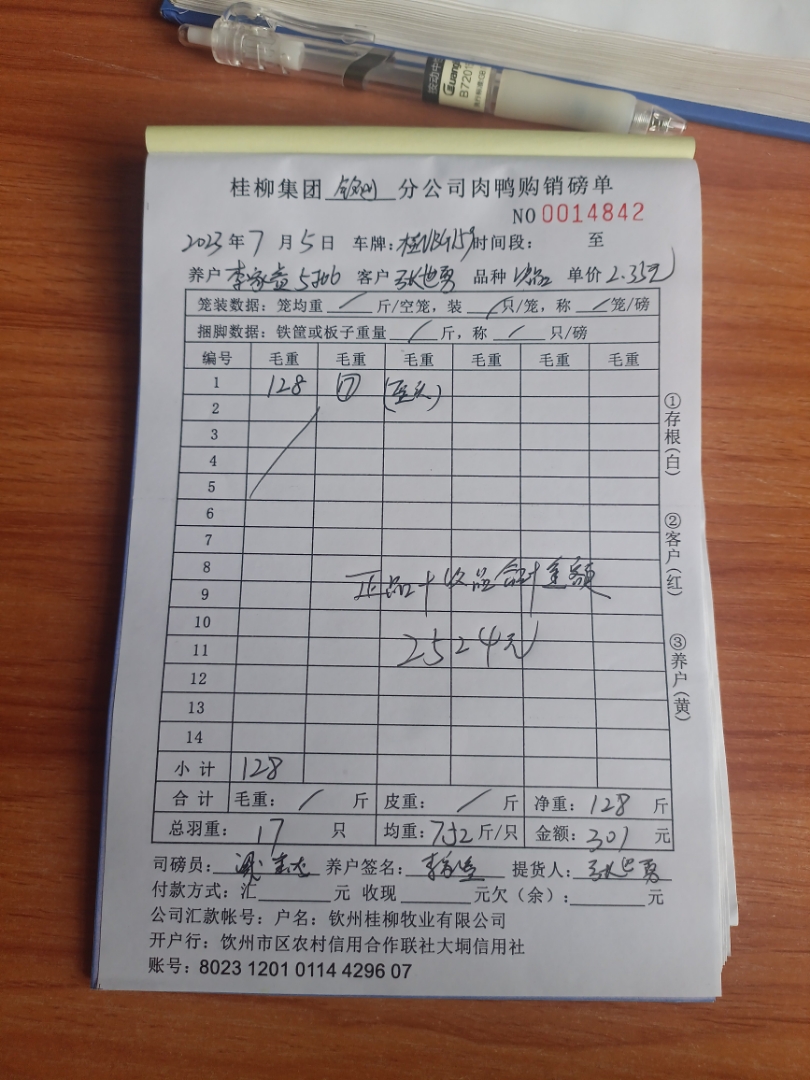 按动中性
Guangbo
B7201
桂柳集团 钦州 分公司肉鸭购销磅单
NO 0014842
2023 年 7 月 5 日 车牌: 时间段: 至
养户 5766 客户 张世勇 品种 次品 单价 2.35元
笼装数据: 笼均重 / 斤/空笼, 装 / 只/笼, 称 / 笼/磅
捆脚数据: 铁筐或板子重量 / 斤, 称 / 只/磅
编号 毛重 毛重 毛重 毛重 毛重 毛重
1 128 ⑰
2
3
4
5
6
7
8
9
正品+次品合计金额
10
11 2524元
12
13
14
小计 128
合计 毛重: / 斤 皮重: / 斤 净重: 128 斤
总羽重: 17 只 均重: 7.52 斤/只 金额: 301 元
司磅员: 养户签名: 提货人: 张世勇
付款方式: 汇 元 收现 元欠(余): 元
公司汇款帐号: 户名: 钦州桂柳牧业有限公司
开户行: 钦州市区农村信用合作联社大垌信用社
账号: 8023 1201 0114 4296 07
①存根(白)
②客户(红)
③养户(黄)